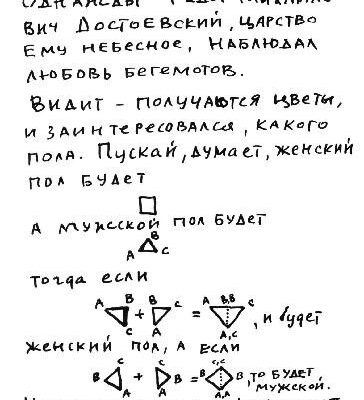 вич Достоевский, царство
ему небесное, наблюдал
любовь бегемотов.
Видит - получаются цветы,
и заинтересовался, какого
пола. Пускай, думает, женский
пол будет
а мужсской пол будет
A B C
тогда если
A B C + B C A = A B,B C A,C , и будет
женский пол, а если
B C A + C B A = B C,C B A,A , то будет мужской.